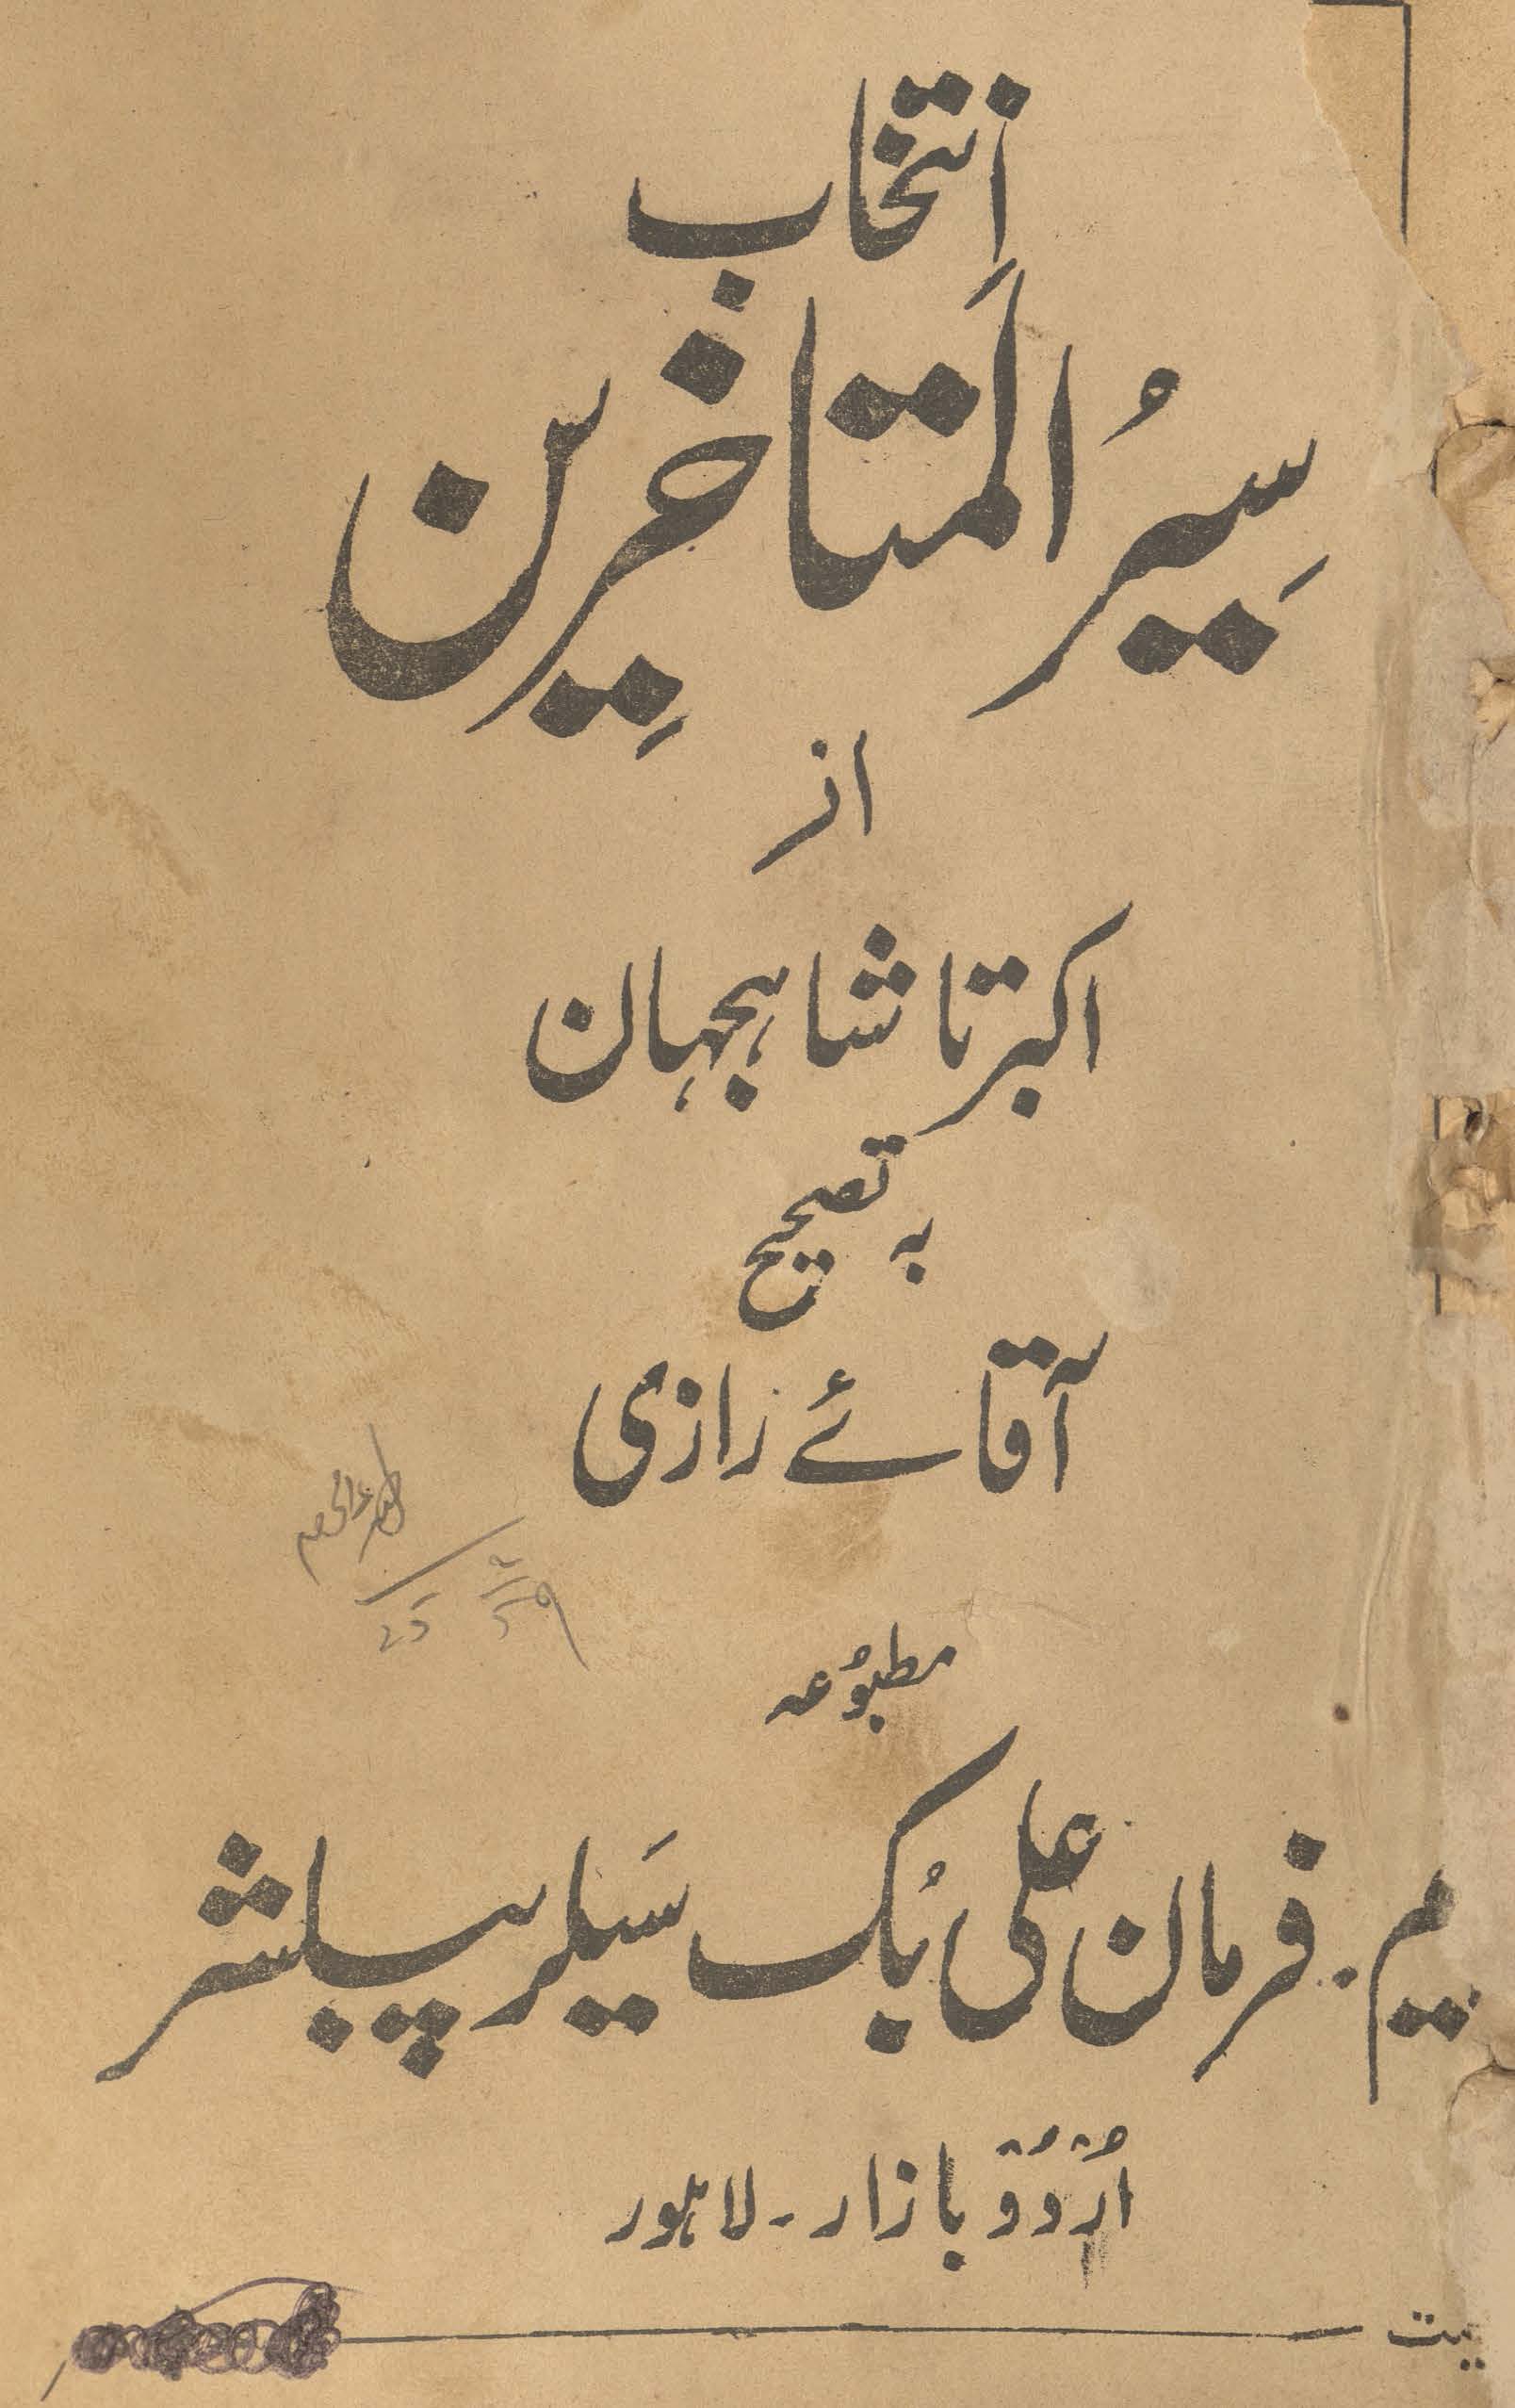 اِنتخاب
سِیرُ المَتاخرِین
از
اکبر تا شاہجہان
بہ تصحیح
آقائے رازی
مطبوُعہ
یم. فرمان علی بُک سَیلر پبلشر
اُرْدُوْ بازار - لاہور
یمت